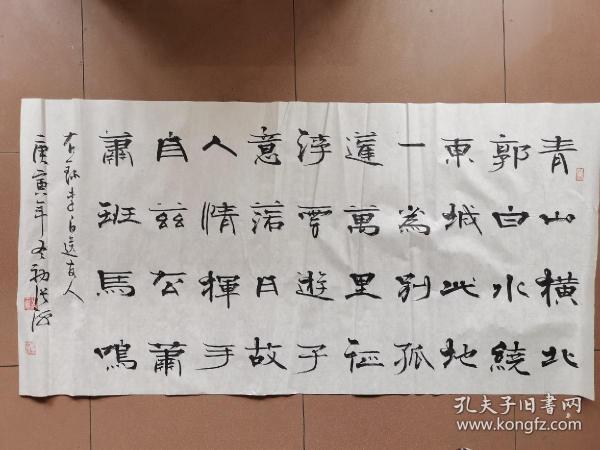 青山橫北
郭白水繞
東城此地
一為別孤
蓬萬里征
浮雲遊子
意落日故
人情揮手
自茲去蕭
蕭班馬鳴
右錄李白送友人
庚寅年冬初
孔夫子旧书网
www.kongfz.com